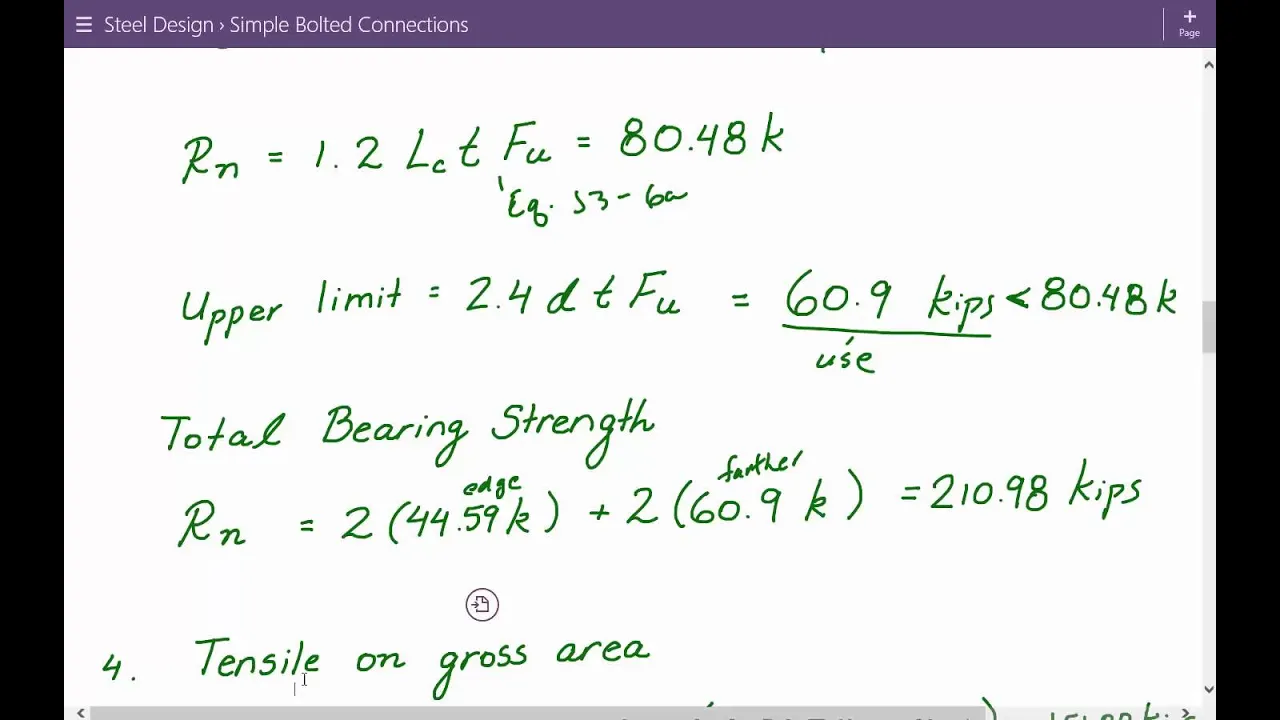 Steel Design › Simple Bolted Connections
Page
Rn = 1.2 Lc t Fu = 80.48 k
Eq. J3-6a
Upper limit = 2.4 d t Fu = 60.9 kips < 80.48 k
use
Total Bearing Strength
edge farther
Rn = 2 (44.59 k) + 2 (60.9 k) = 210.98 kips
4. Tensile on gross area